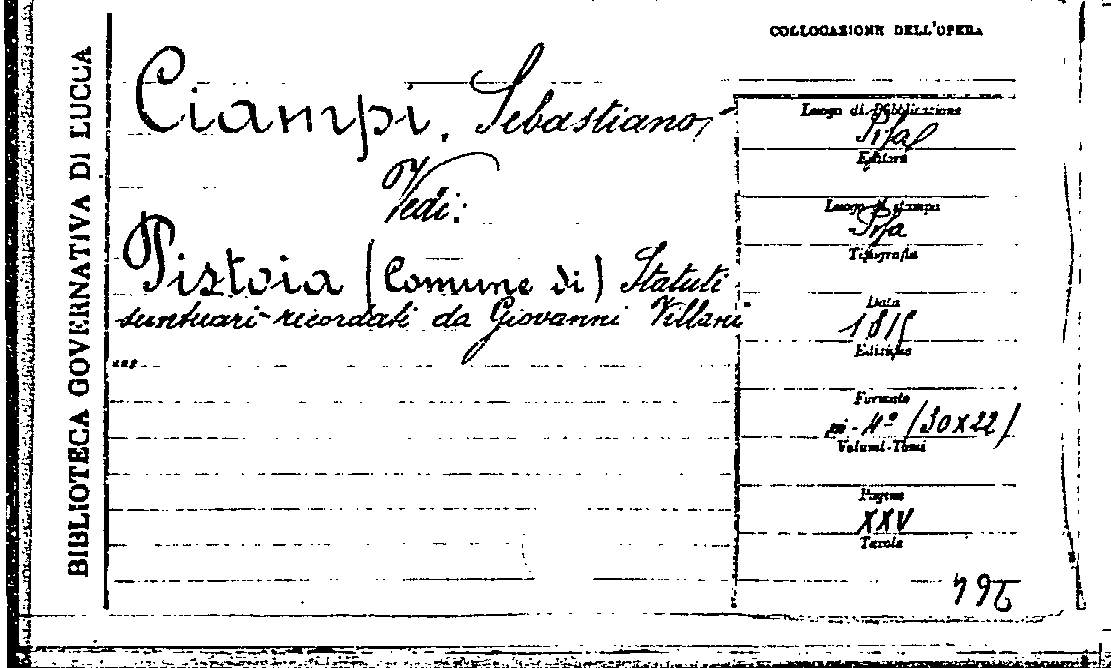 BIBLIOTECA GOVERNATIVA DI LUCCA
Ciampi, Sebastiano,
Vedi:
Pistoia (Comune di) Statuti
suntuari ricordati da Giovanni Villani
COLLOCAZIONE DELL'OPERA
Luogo di Pubblicazione
Pisa
Editore
Luogo di stampa
Pisa
Tipografia
Data
1815
Edizione
Formato
in-4º (30x22)
Volumi-Tomi
Pagine
XXV
Tavole